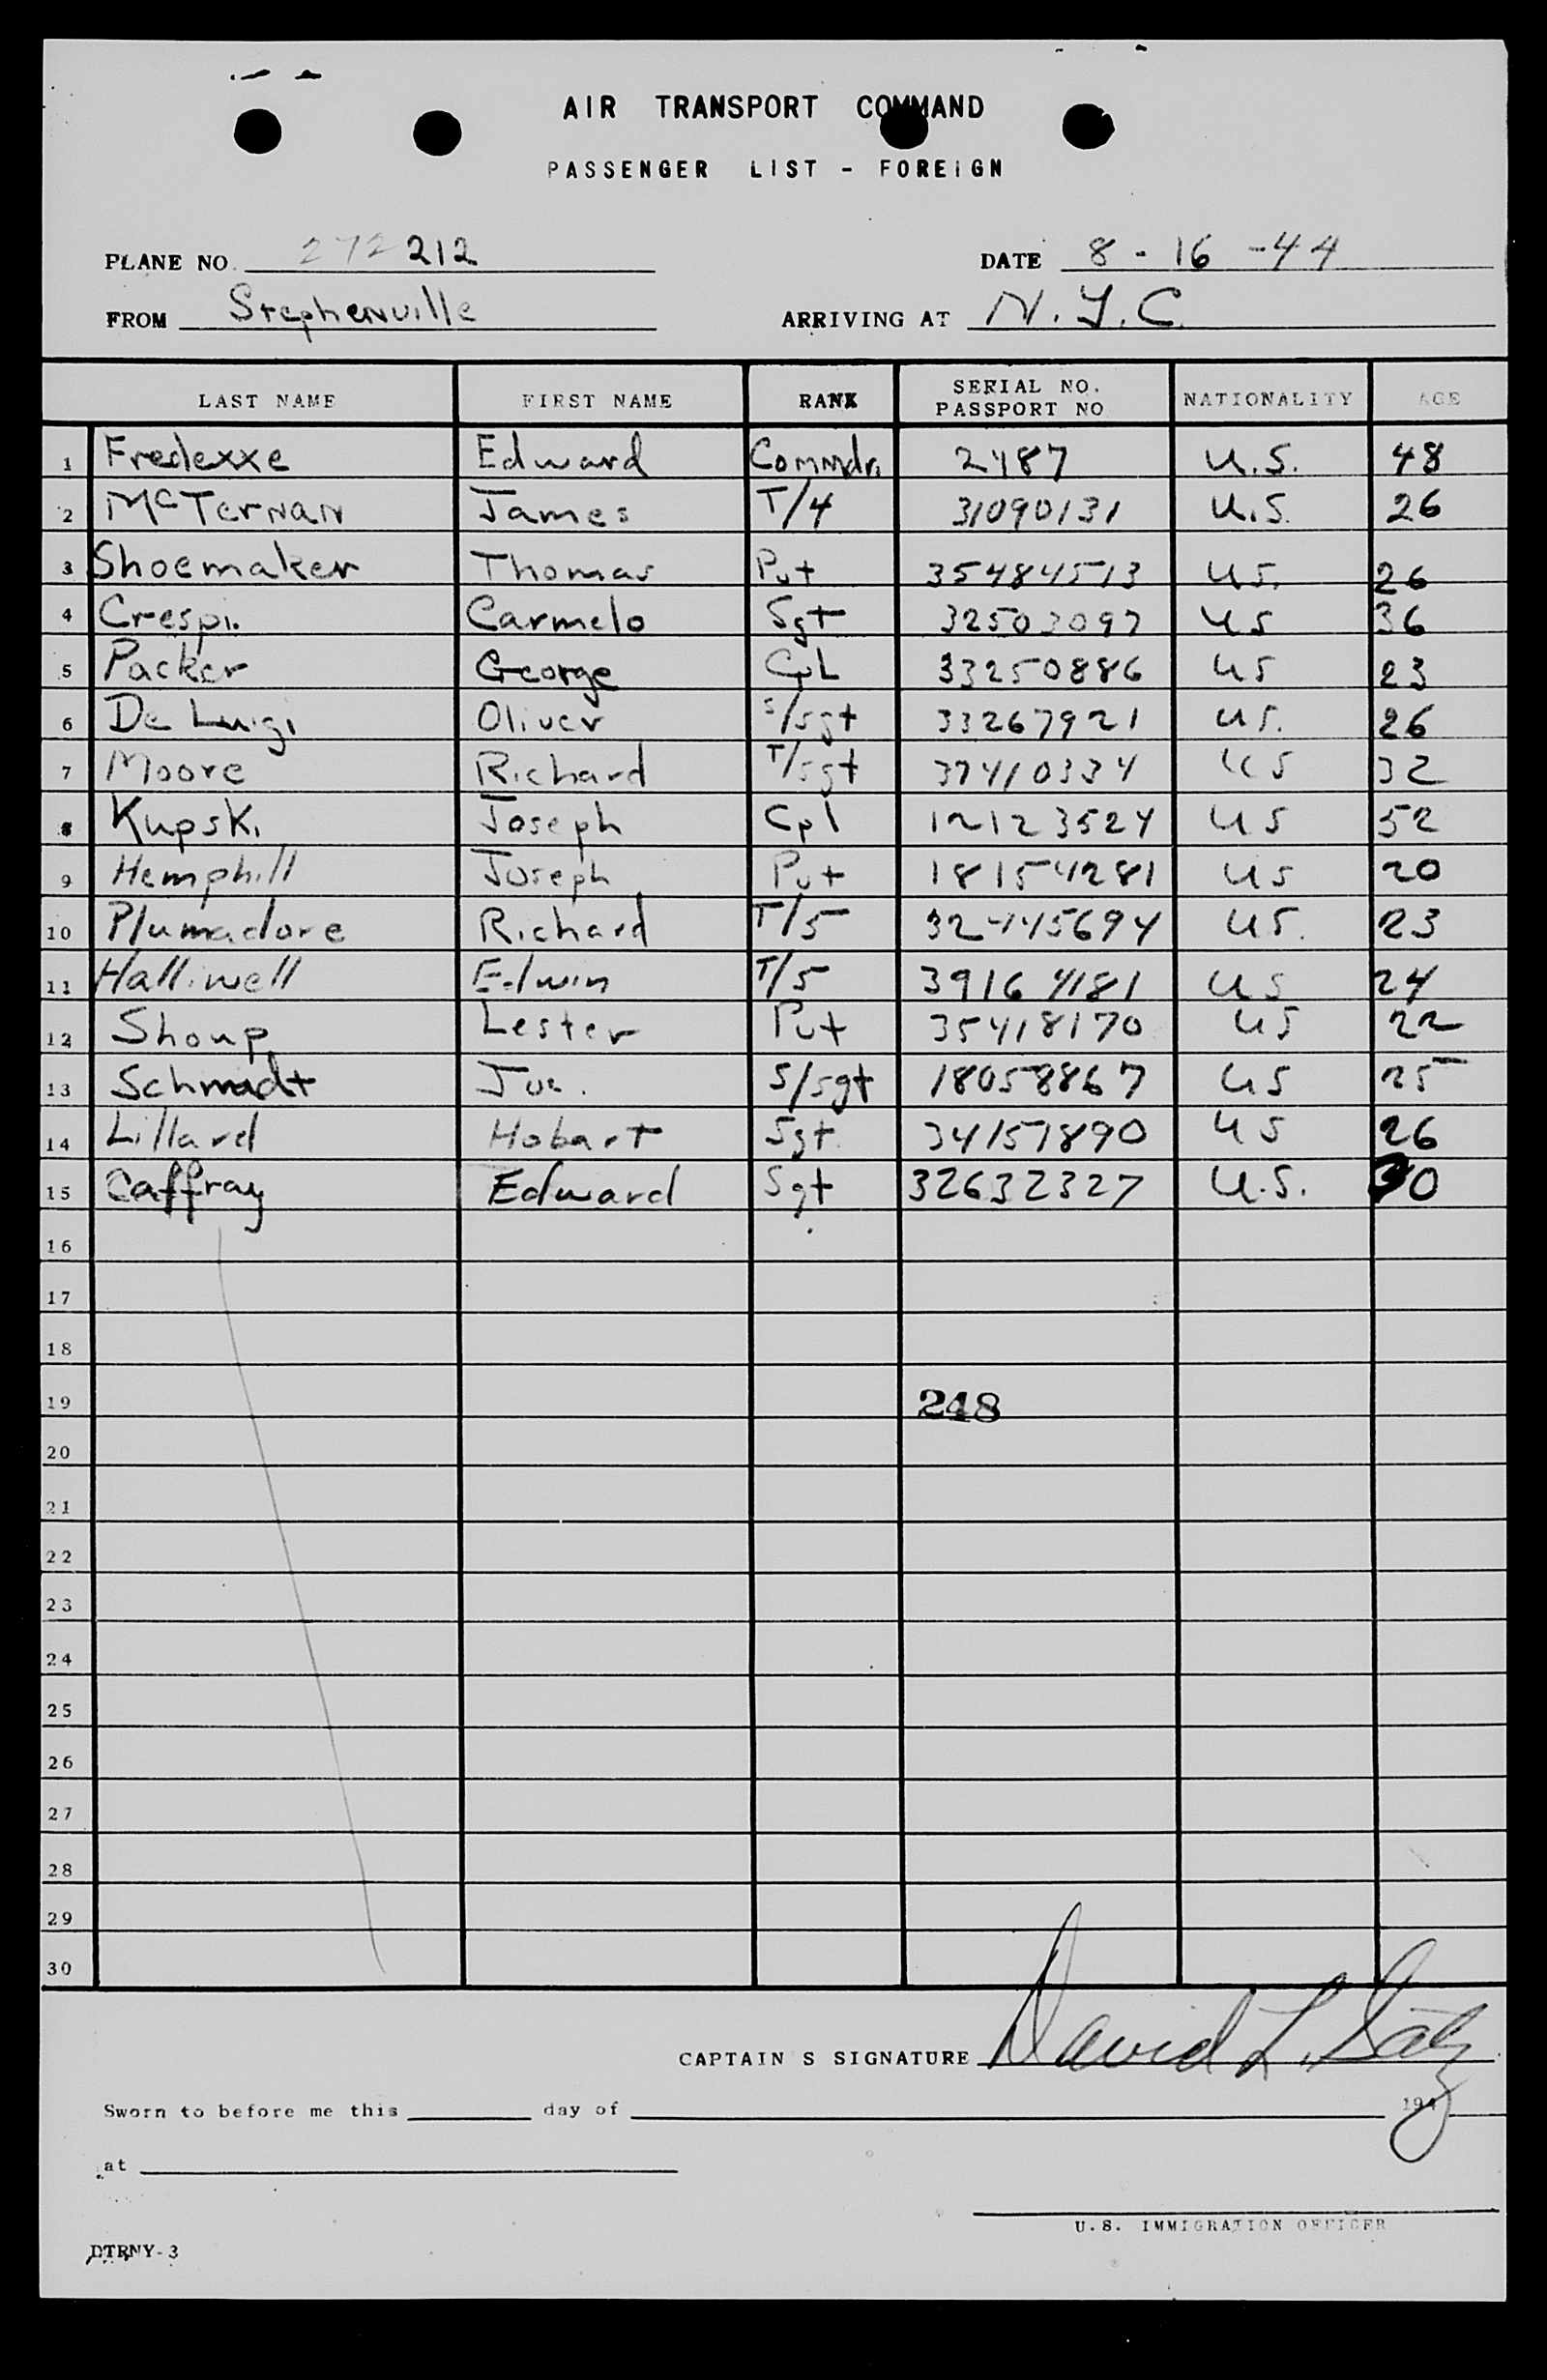 AIR TRANSPORT COMMAND
PASSENGER LIST - FOREIGN
PLANE NO. 272212 DATE 8-16-44
FROM Stephenville ARRIVING AT N.Y.C.
LAST NAME FIRST NAME RANK SERIAL NO. PASSPORT NO NATIONALITY AGE
1 Fredexxe Edward Commdr. 2487 U.S. 48
2 McTernan James T/4 31090131 U.S. 26
3 Shoemaker Thomas Pvt 35484513 US. 26
4 Crespi. Carmelo Sgt 32503097 US 36
5 Packer George CpL 33250886 US 23
6 De Luigi Oliver S/sgt 33267921 US. 26
7 Moore Richard T/sgt 37410334 US 32
8 Kupski Joseph Cpl 12123524 US 52
9 Hemphill Joseph Pvt 18154281 US 20
10 Plumadore Richard T/5 32445694 US. 23
11 Halliwell Edwin T/5 39164181 US 24
12 Shoup Lester Pvt 35418170 US 22
13 Schmadt Joe. S/sgt 18058867 US 25
14 Lillard Hobart Sgt. 34151890 US 26
15 Caffray Edward Sgt 32632327 U.S. 30
16
17
18
19 248
20
21
22
23
24
25
26
27
28
29
30
CAPTAIN S SIGNATURE David L.
Sworn to before me this day of 194
at
U.S. IMMIGRATION OFFICER
DTRNY-3